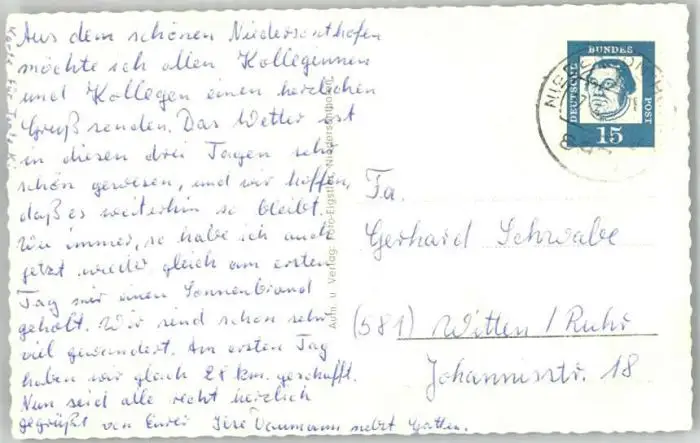 Aus dem schönen Niedersonthofen
möchte ich allen Kolleginnen
und Kollegen einen herzlichen
Gruß senden. Das Wetter ist
in diesen drei Tagen sehr
schön gewesen, und wir hoffen,
daß es weiterhin so bleibt.
Wie immer, so habe ich auch
jetzt wieder gleich am ersten
Tag mir einen Sonnenbrand
geholt. Wir sind schon sehr
viel gewandert. Am ersten Tag
haben wir gleich 28 km. geschafft.
Nun seid alle recht herzlich
gegrüßt von Eurer Naumann nebst Gatten.
Karte für
Aufn. u. Verlag: Foto-Eigstler, Niedersonthofen
DEUTSCHE
BUNDES
POST
15
Fa.
Gerhard Schwabe
(581) Witten / Ruhr
Johannisstr. 18